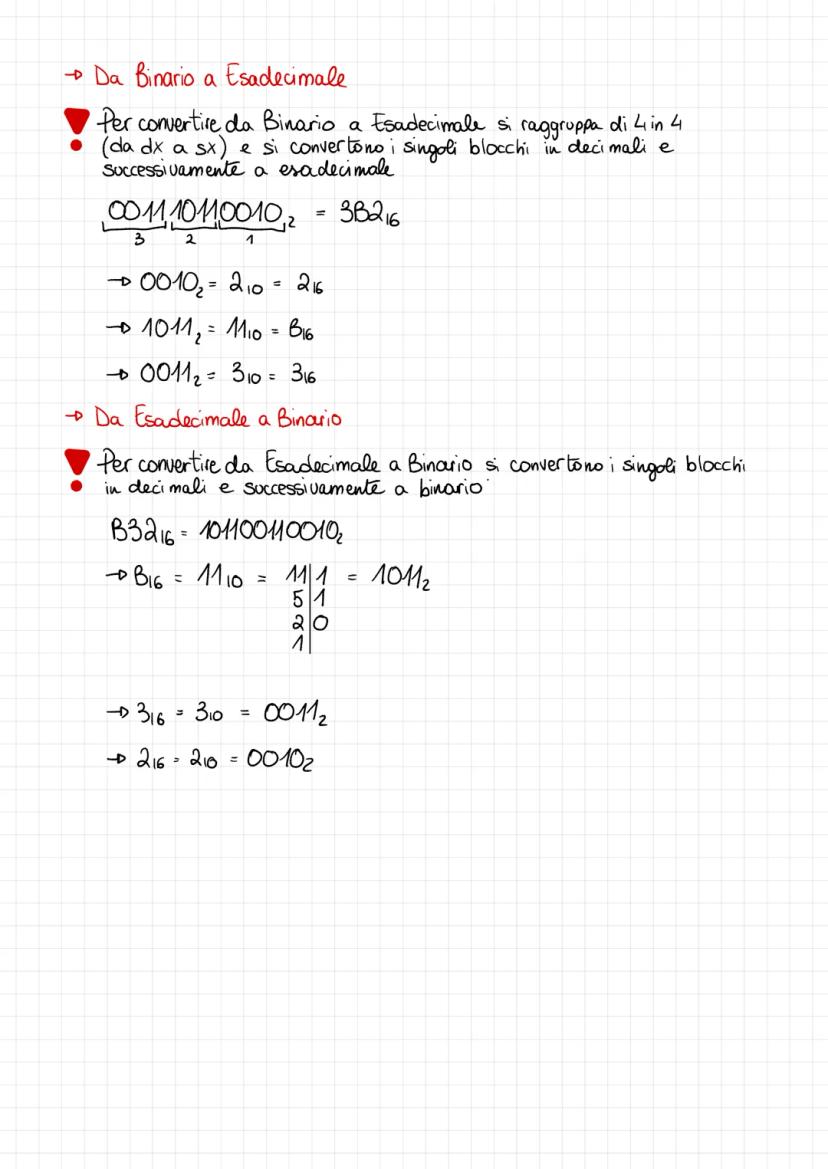 → Da Binario a Esadecimale
! Per convertire da Binario a Esadecimale si raggruppa di 4 in 4
(da dx a sx) e si convertono i singoli blocchi in decimali e
successivamente a esadecimale
001110110010₂ = 3B2₁₆
3 2 1
→ 0010₂ = 2₁₀ = 2₁₆
→ 1011₂ = 11₁₀ = B₁₆
→ 0011₂ = 3₁₀ = 3₁₆
→ Da Esadecimale a Binario
! Per convertire da Esadecimale a Binario si convertono i singoli blocchi
in decimali e successivamente a binario
B32₁₆ = 101100110010₂
→ B₁₆ = 11₁₀ = 11|1 = 1011₂
5|1
2|0
1|
→ 3₁₆ = 3₁₀ = 0011₂
→ 2₁₆ = 2₁₀ = 0010₂